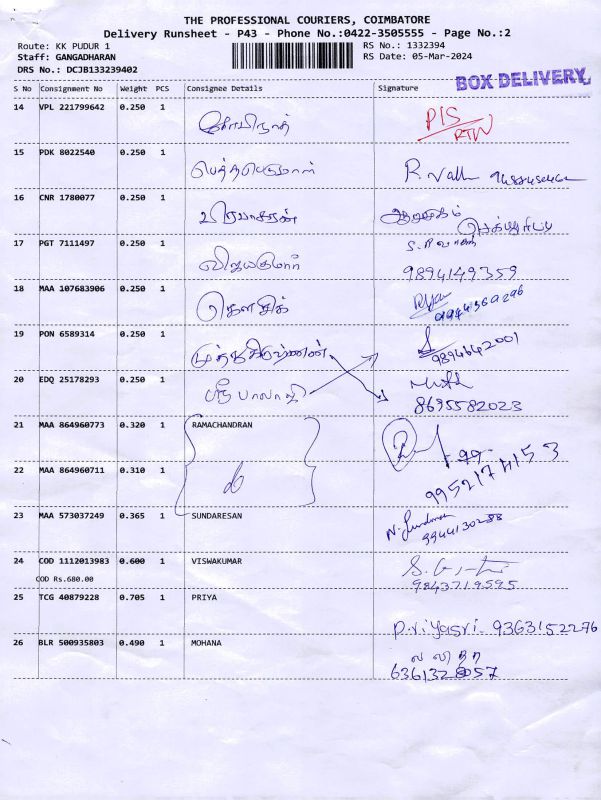 THE PROFESSIONAL COURIERS, COIMBATORE
Delivery Runsheet - P43 - Phone No.:0422-3505555 - Page No.:2
Route: KK PUDUR 1 RS No.: 1332394
Staff: GANGADHARAN RS Date: 05-Mar-2024
DRS No.: DCJB133239402
BOX DELIVERY
S No Consignment No Weight PCS Consignee Details Signature
14 VPL 221799642 0.250 1 கோபிநாத் P/S
RTN
15 PDK 8022540 0.250 1 பெத்தபெருமாள் R. Valli
16 CNR 1780077 0.250 1 வீரபாகரன்
17 PGT 7111497 0.250 1 விஜயகுமார்
9894149359
18 MAA 107683906 0.250 1 கௌசிக்
9944569296
19 PON 6589314 0.250 1 முத்துகிருஷ்ணன்
9894642001
20 EDQ 25178293 0.250 1 ஸ்ரீ பாலாஜி
8695582023
21 MAA 864960773 0.320 1 RAMACHANDRAN
22 MAA 864960711 0.310 1 9952174153
23 MAA 573037249 0.365 1 SUNDARESAN
9944130288
24 COD 1112013983 0.600 1 VISWAKUMAR
COD Rs.680.00 9843719595
25 TCG 40879228 0.705 1 PRIYA
P.riyasri. 9363152276
26 BLR 500935803 0.490 1 MOHANA லலிதா
6361328057